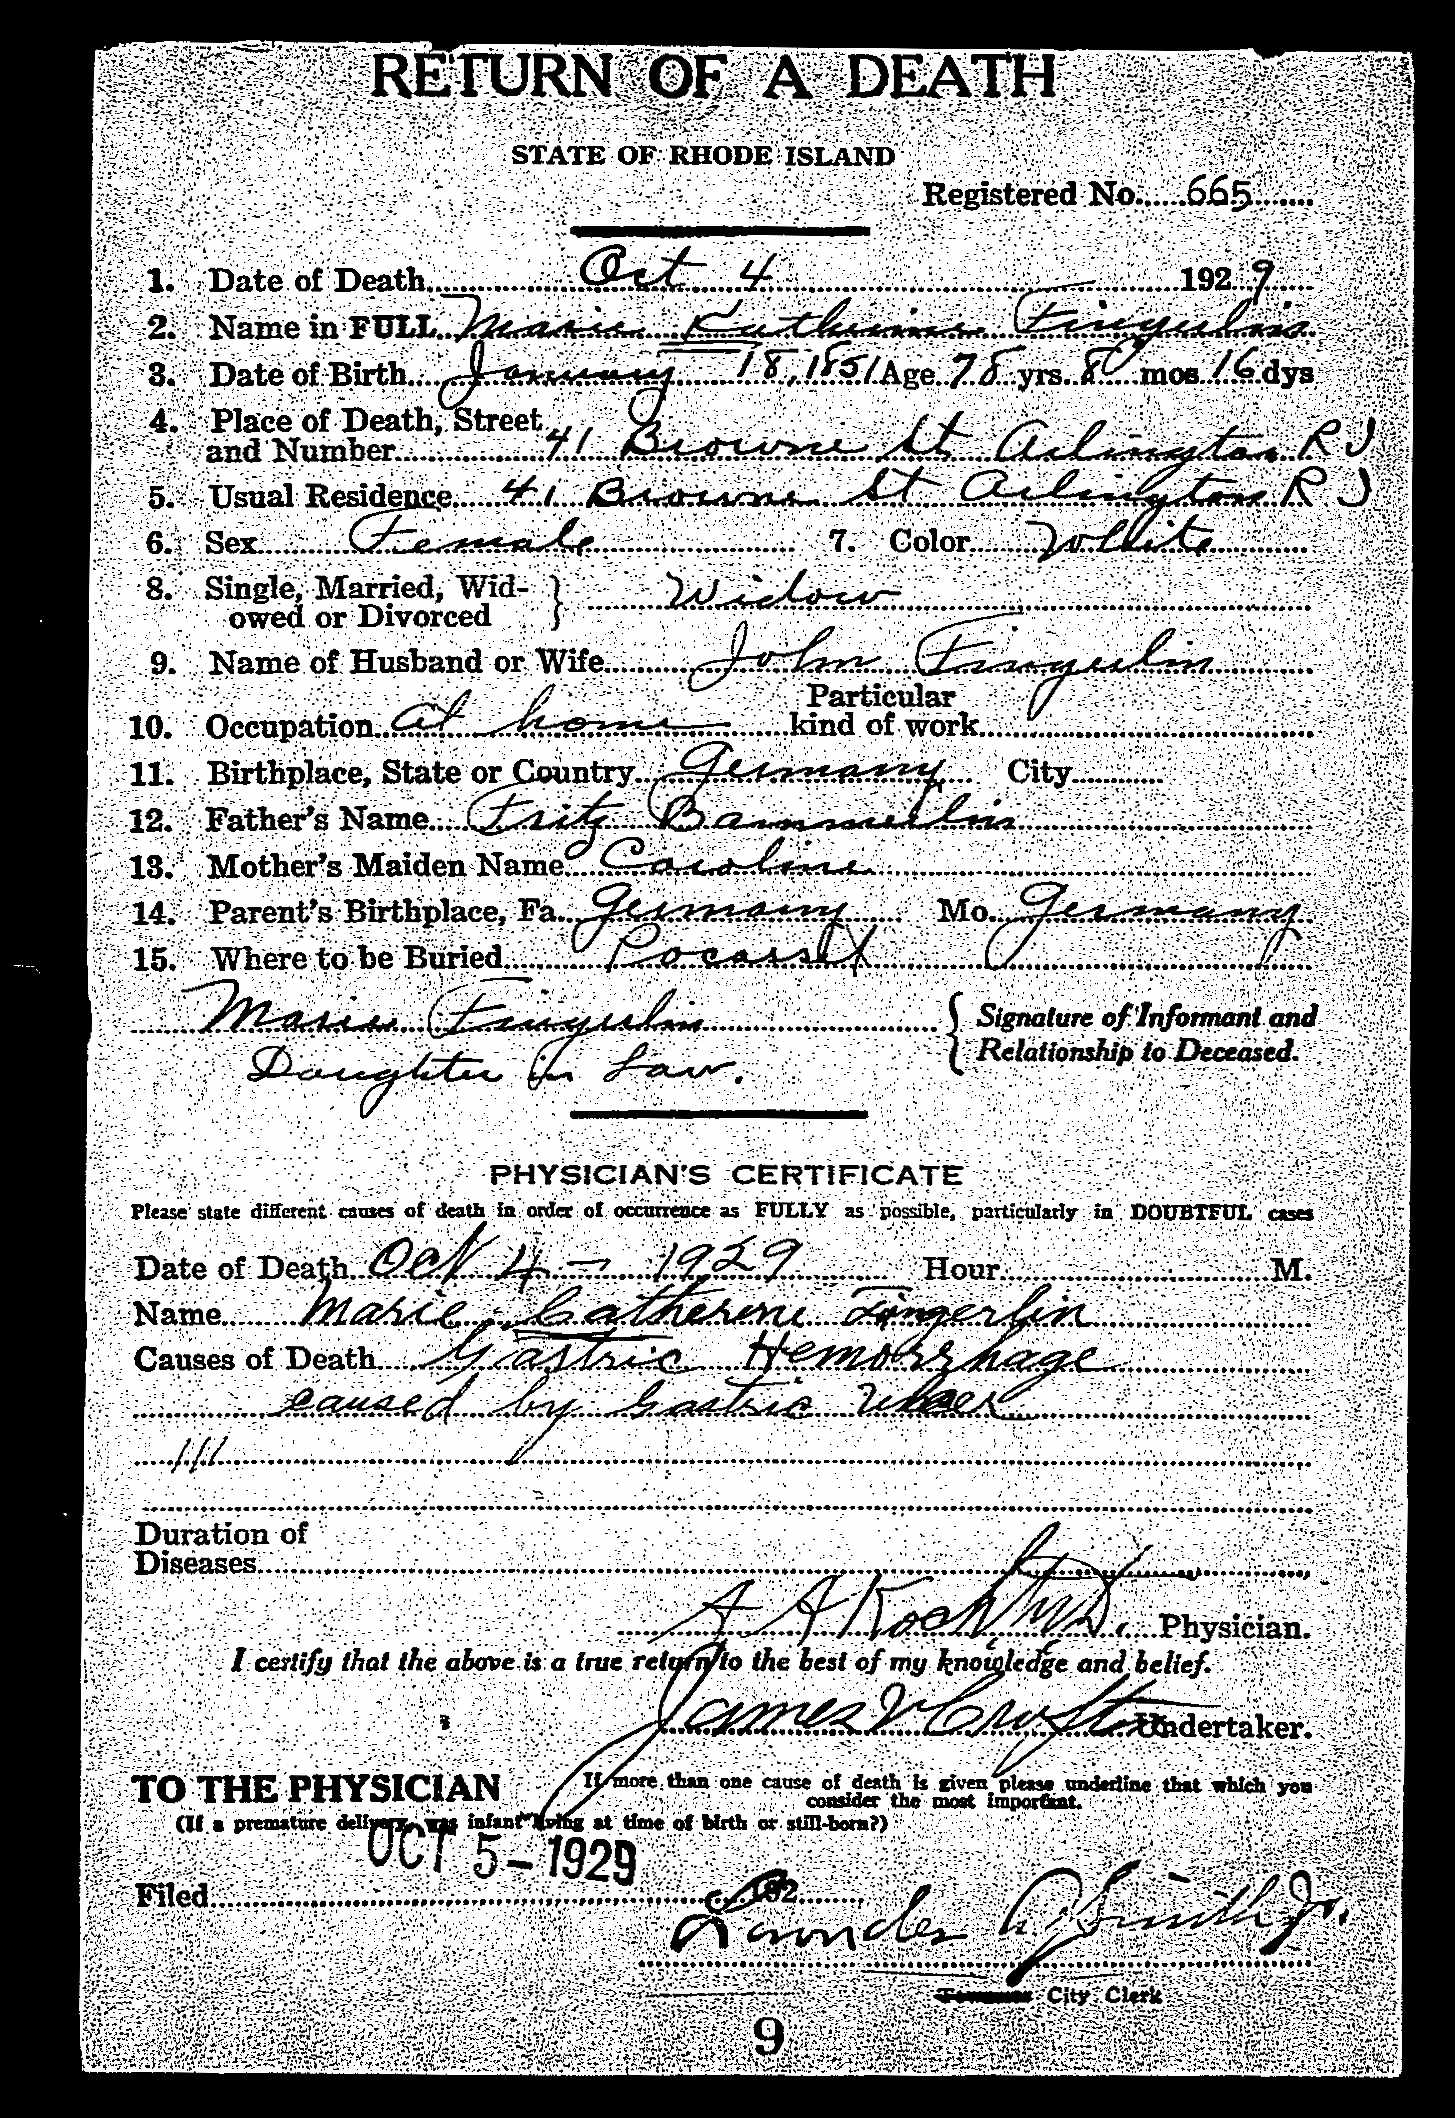 RETURN OF A DEATH
STATE OF RHODE ISLAND
Registered No. 665
1. Date of Death Oct 4 1929
2. Name in FULL Marie Katherine Fingerlin
3. Date of Birth January 18, 1851 Age 78 yrs. 8 mos. 16 dys
4. Place of Death, Street
and Number 41 Browne St Arlington R I
5. Usual Residence 41 Browne St Arlington R I
6. Sex Female 7. Color White
8. Single, Married, Wid-
owed or Divorced } Widow
9. Name of Husband or Wife John Fingerlin
Particular
10. Occupation at home kind of work
11. Birthplace, State or Country Germany City
12. Father's Name Fritz Bammerlin
13. Mother's Maiden Name Caroline
14. Parent's Birthplace, Fa. Germany Mo. Germany
15. Where to be Buried Pocasset
Marie Fingerlin { Signature of Informant and
Daughter in Law. Relationship to Deceased.
PHYSICIAN'S CERTIFICATE
Please state different causes of death in order of occurrence as FULLY as possible, particularly in DOUBTFUL cases
Date of Death Oct 4 - 1929 Hour M.
Name Marie Catherine Fingerlin
Causes of Death Gastric Hemorrhage
caused by Gastric Ulcer
111
Duration of
Diseases
A A Physician.
I certify that the above is a true return to the best of my knowledge and belief.
James Undertaker.
TO THE PHYSICIAN If more than one cause of death is given please underline that which you
consider the most important.
(If a premature delivery, was infant living at time of birth or still-born?)
OCT 5-1929
Filed 192
Smith Jr.
City Clerk
9